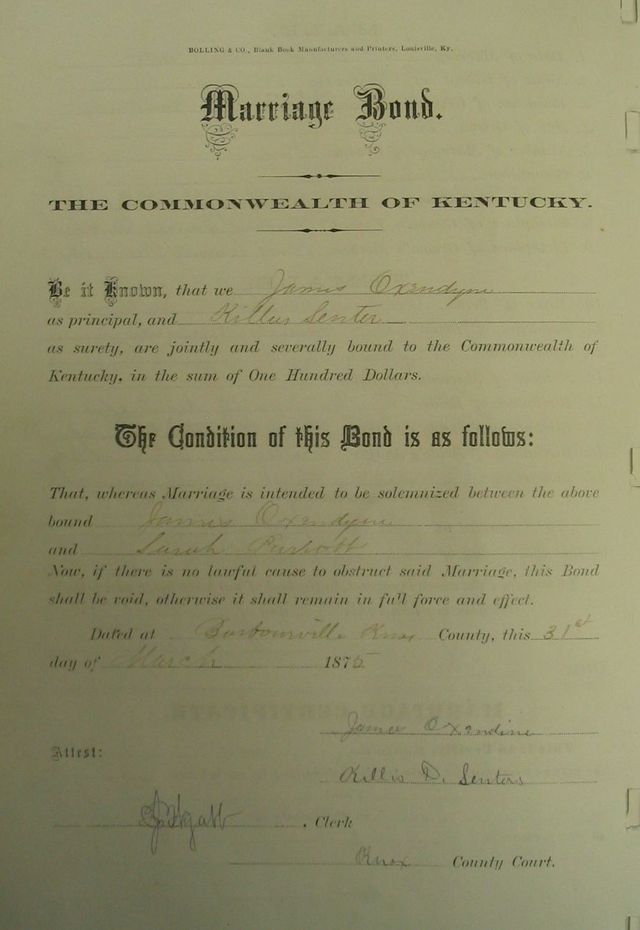 BOLLING & CO., Blank Book Manufacturers and Printers, Louisville, Ky.
Marriage Bond.
THE COMMONWEALTH OF KENTUCKY.
Be it Known, that we James Oxendyne
as principal, and Killus Senter
as surety, are jointly and severally bound to the Commonwealth of
Kentucky, in the sum of One Hundred Dollars.
The Condition of this Bond is as follows:
That, whereas Marriage is intended to be solemnized between the above
bound James Oxendyne
and Sarah
Now, if there is no lawful cause to obstruct said Marriage, this Bond
shall be void, otherwise it shall remain in full force and effect.
Dated at Barbourville Knox County, this 31st
day of March 1875
James Oxendine
Attest:
Killis D. Senters
, Clerk
Knox County Court.